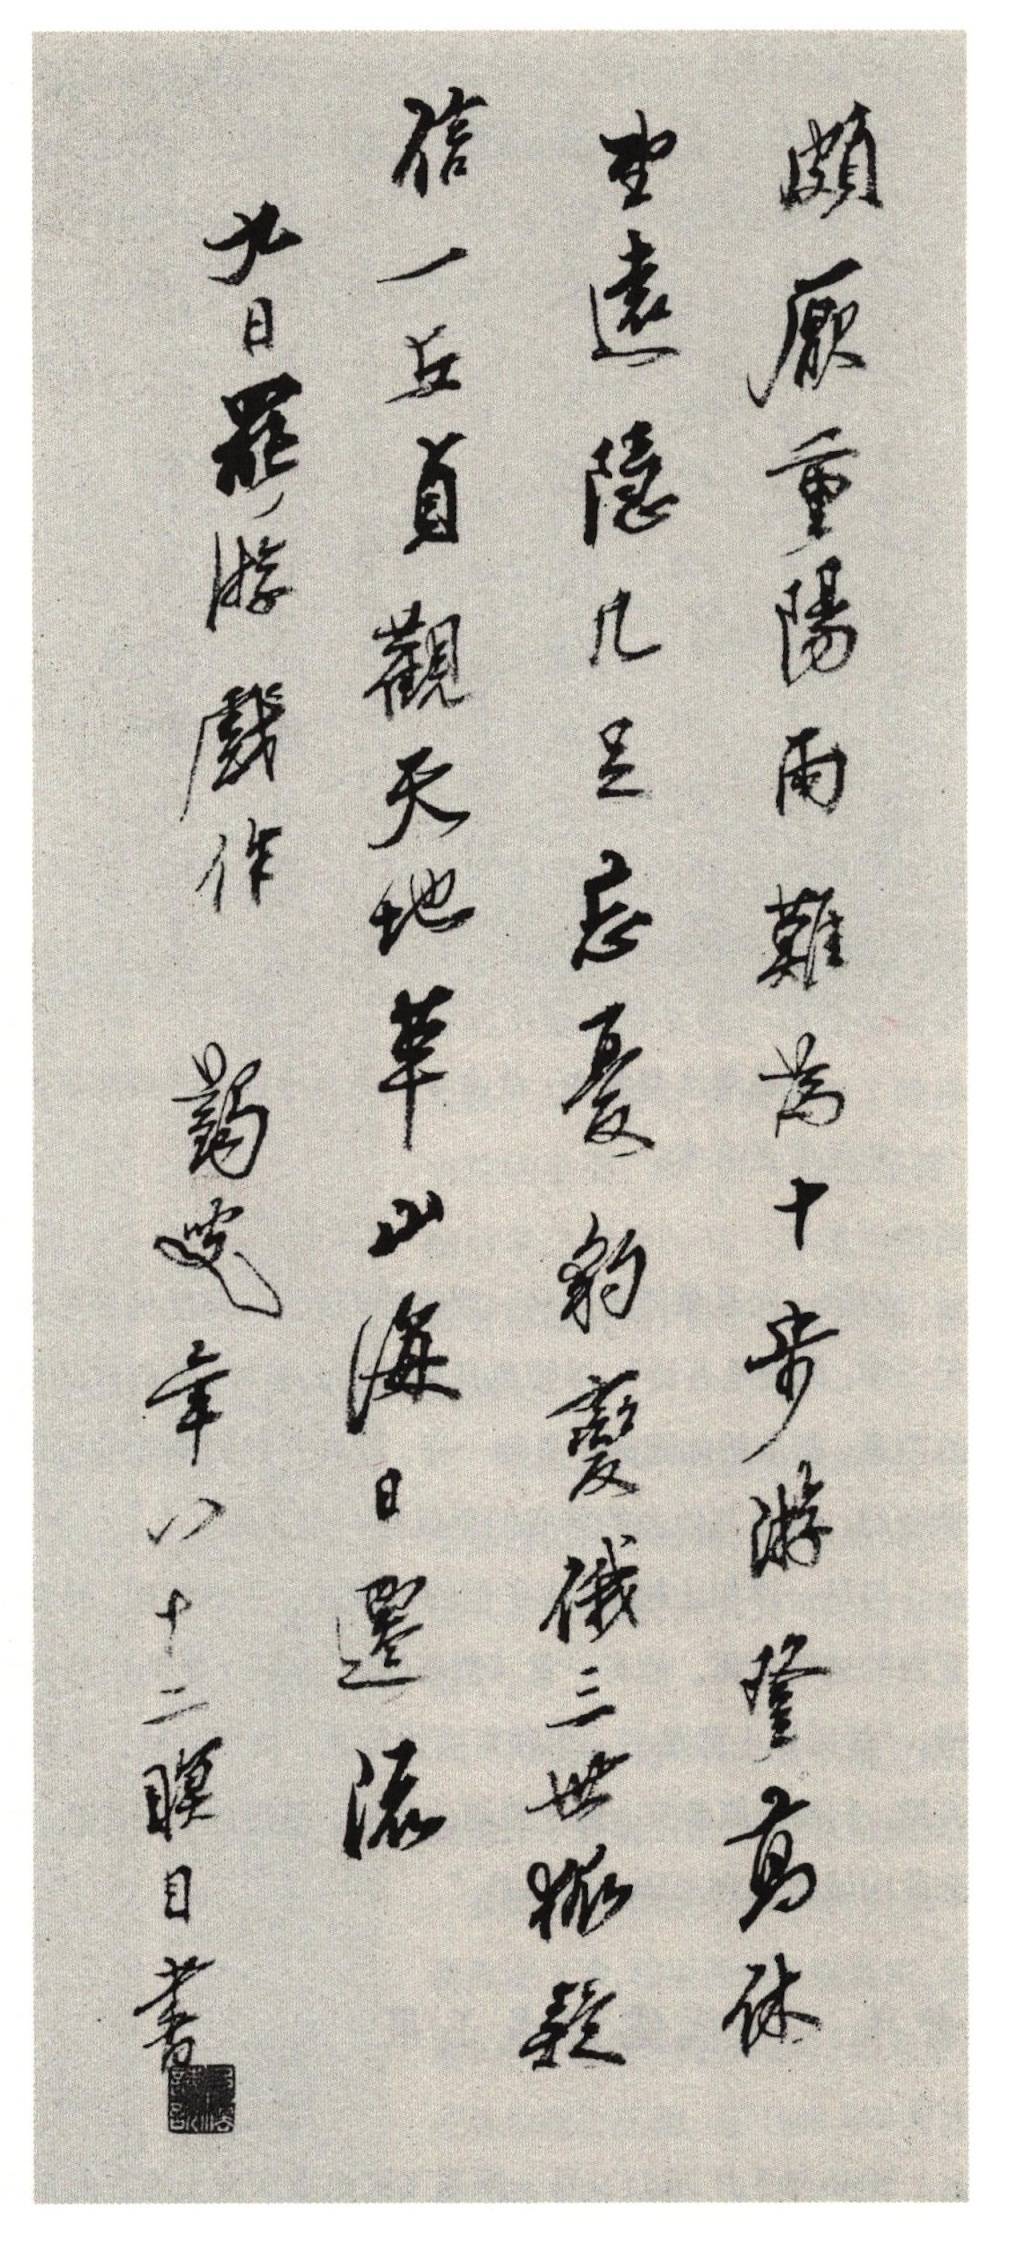 頗厭重陽雨難為十步游登高休
望遠隱几足忘憂豹變俄三世狐疑
信一丘貞觀天地革山海日遷流
九日罷游戲作 蠲叟年八十二瞑目書